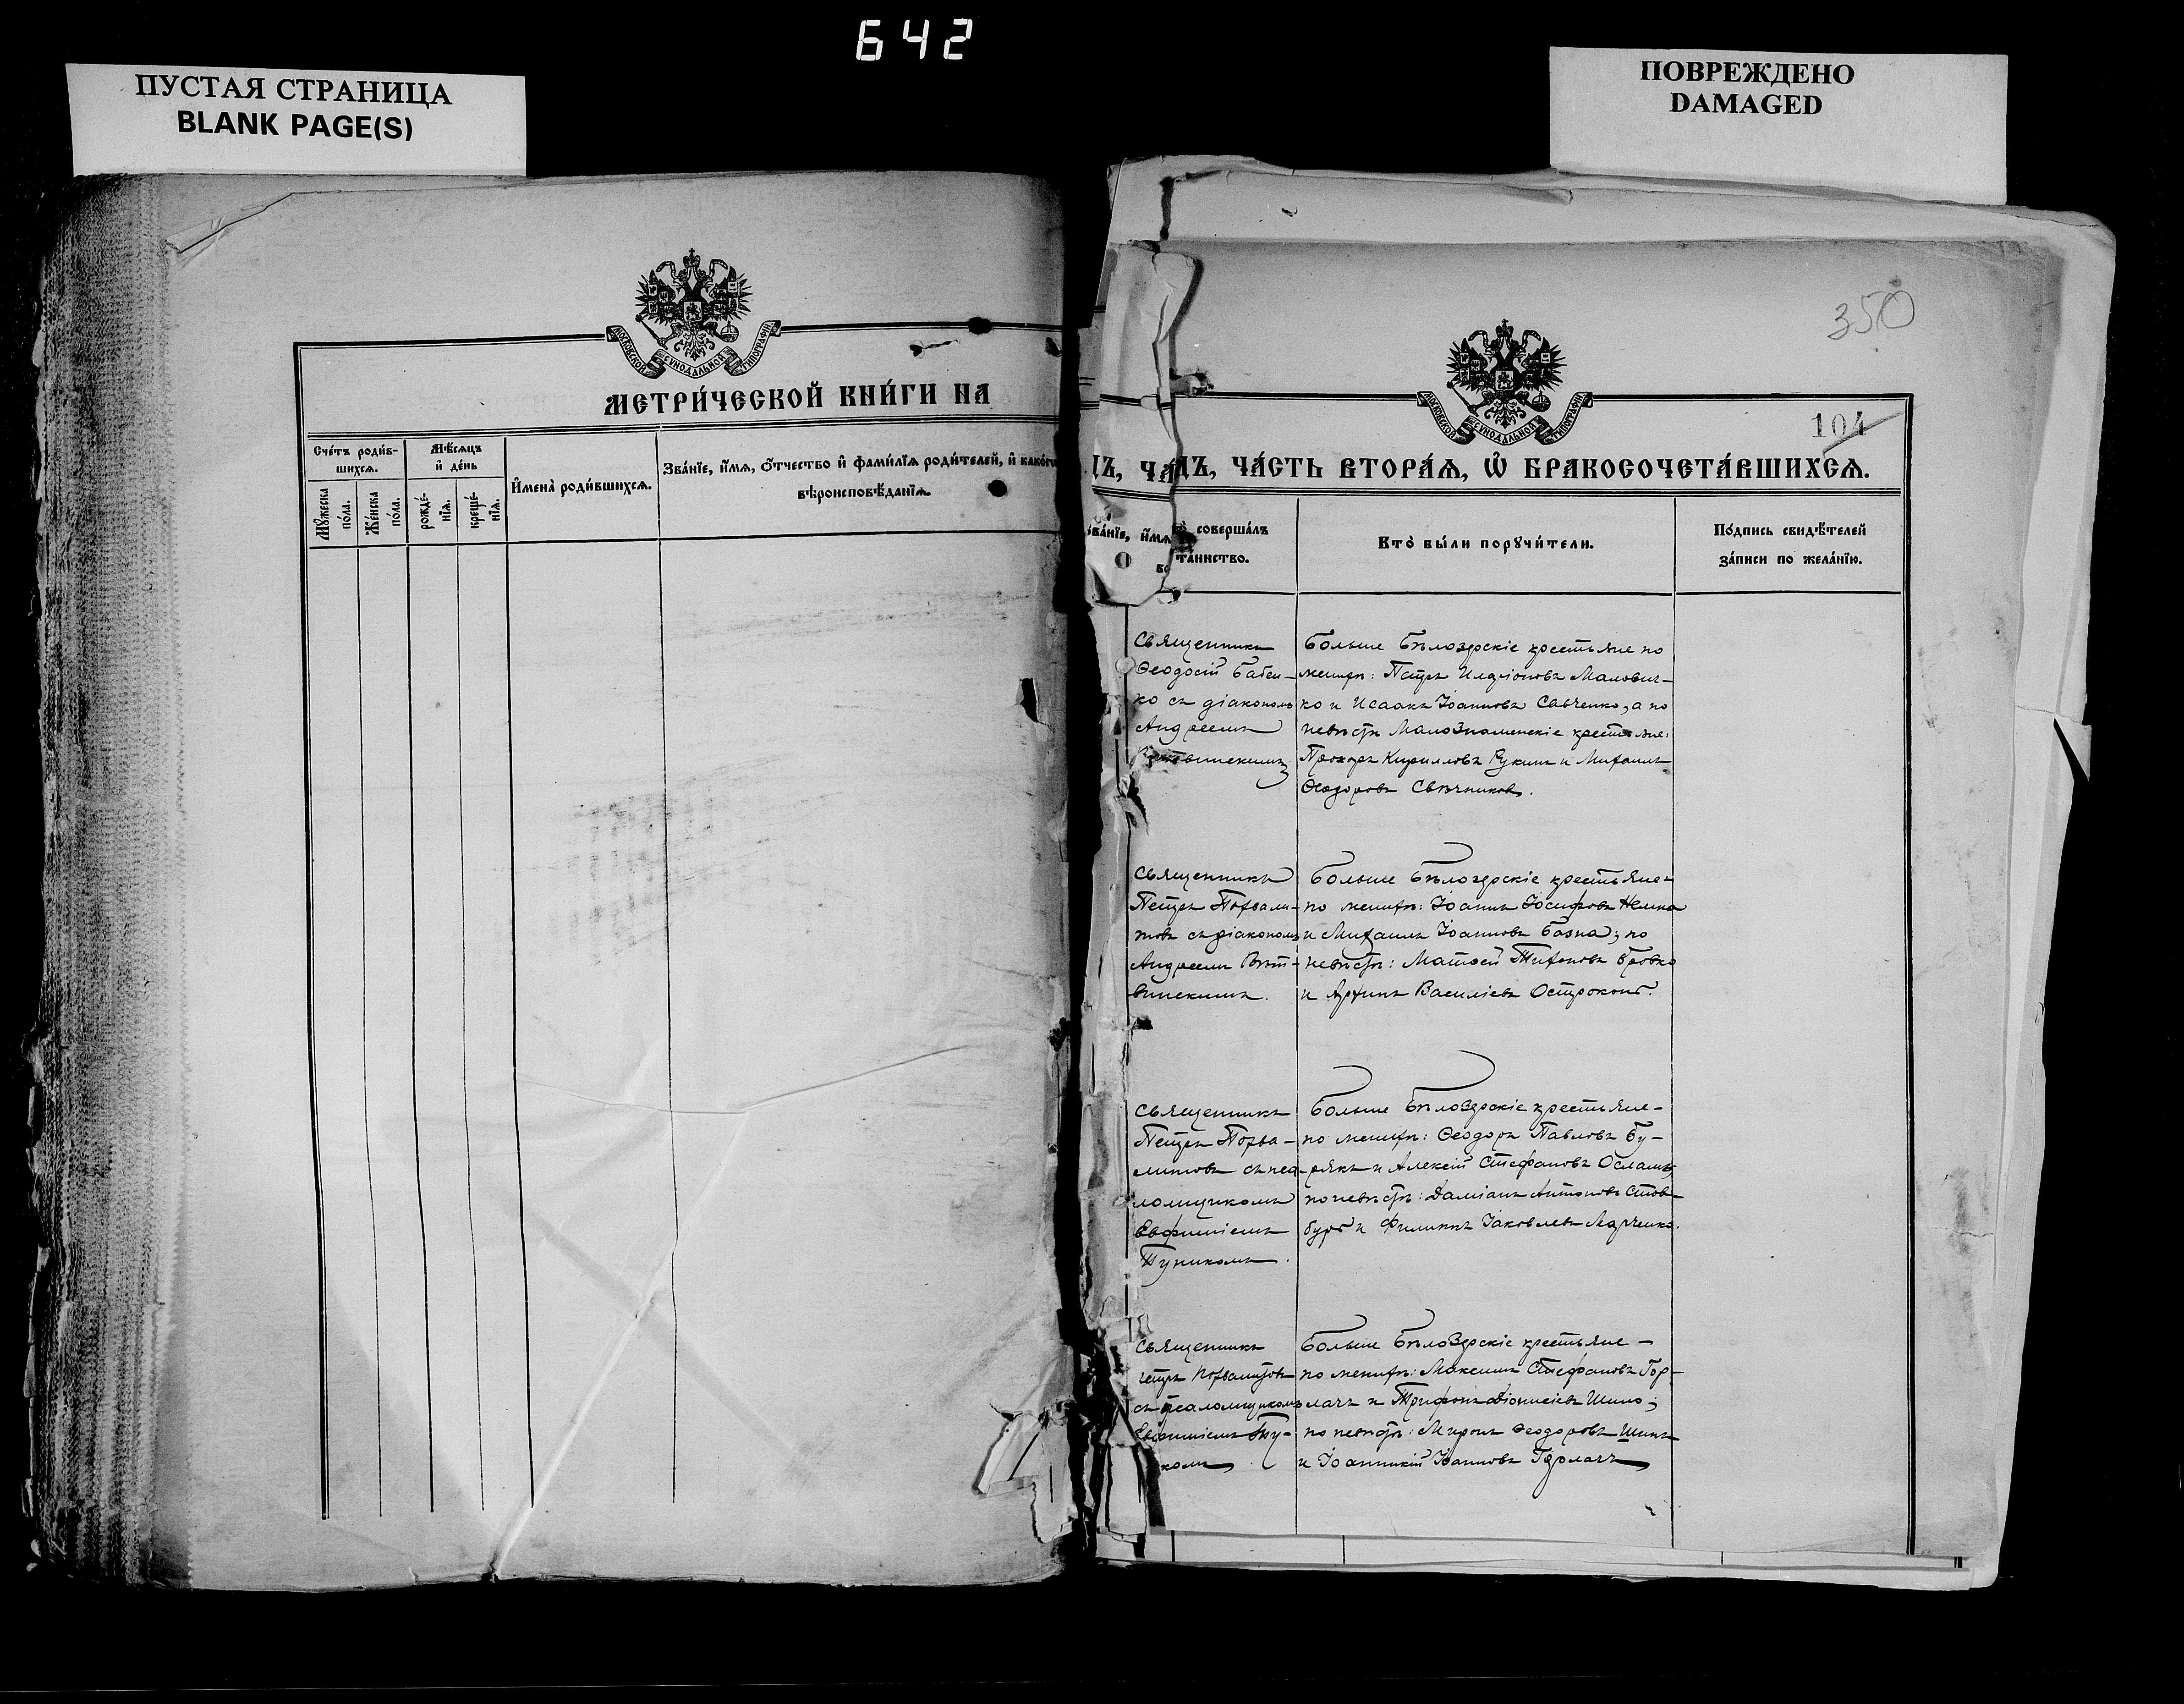 642
ПУСТАЯ СТРАНИЦА
BLANK PAGE(S)
ПОВРЕЖДЕНО
DAMAGED
МОСКОВСКОЙ СѴНОДАЛЬНОЙ ТИПОГРАФІИ
МЕТРИ́ЧЕСКОЙ КНИ́ГИ НА
Сче́тъ роди́в-
шихсѧ.
Мѣ́сѧцъ
и҆ де́нь
И҆мена̀ роди́вшихсѧ.
Зва́нїе, и҆́мѧ, ѻ҆́тчество и҆ фами́лїѧ роди́телей, и҆ како́гѡ
вѣроисповѣ́данїѧ.
Мꙋ́жеска
по́ла.
Же́нска
по́ла.
рожде́-
нїѧ.
креще́-
нїѧ.
350
МОСКОВСКОЙ СѴНОДАЛЬНОЙ ТИПОГРАФІИ
104
ДЪ, ЧА́СТЬ ВТОРА́Ѧ, Ѡ҆ БРАКОСОЧЕТА́ВШИХСѦ.
ва́нїе, и҆́мѧ
соверша́лъ
та́инство.
Кто̀ бы́ли порꙋчи́тели.
По́дпись свидѣ́телей
за́писи по жела́нїю.
Священникъ
Ѳеодосій Бабен-
ко съ діакономъ
Андреемъ
Больше Бѣлозерскіе крестьяне по
женихѣ: Петръ Иларіоновъ Малович-
ко и Исаакъ Іоанновъ Савченко, а по
невѣстѣ Мало Знаменскіе крестьяне:
Прохоръ Кирилловъ Рукинъ и Михаилъ
Ѳеодоровъ Свѣчниковъ.
Священникъ
Петръ Похвали-
товъ съ діакономъ
Андреемъ Витт-
винскимъ.
Больше Бѣлозерскіе крестьяне
по женихѣ: Іоаннъ Іосифовъ
и Михаилъ Іоанновъ Базна; по
невѣстѣ: Матѳей Тихоновъ Бровко
и Архипъ Василіевъ Остроконь.
Священникъ
Петръ Похва-
литовъ съ пса-
ломщикомъ
Евфиміемъ
Тупикомъ.
Больше Бѣлозерскіе крестьяне-
по женихѣ: Ѳеодоръ Павловъ Бу-
рякъ и Алексій Стефановъ Осламъ,
по невѣстѣ: Даміанъ Антоновъ Стов-
буръ и Филиппъ Іаковлевъ Марченко.
Священникъ
Петръ Похвалитовъ
съ псаломщикомъ
Евфиміемъ Ту-
комъ.
Больше Бѣлозерскіе крестьяне -
по женихѣ: Максимъ Стефановъ Гор-
лачъ и Трифонъ Діонисіевъ Шило;
по невѣстѣ: Миронъ Ѳеодоровъ
и Іоанникій Іоанновъ Горлачъ